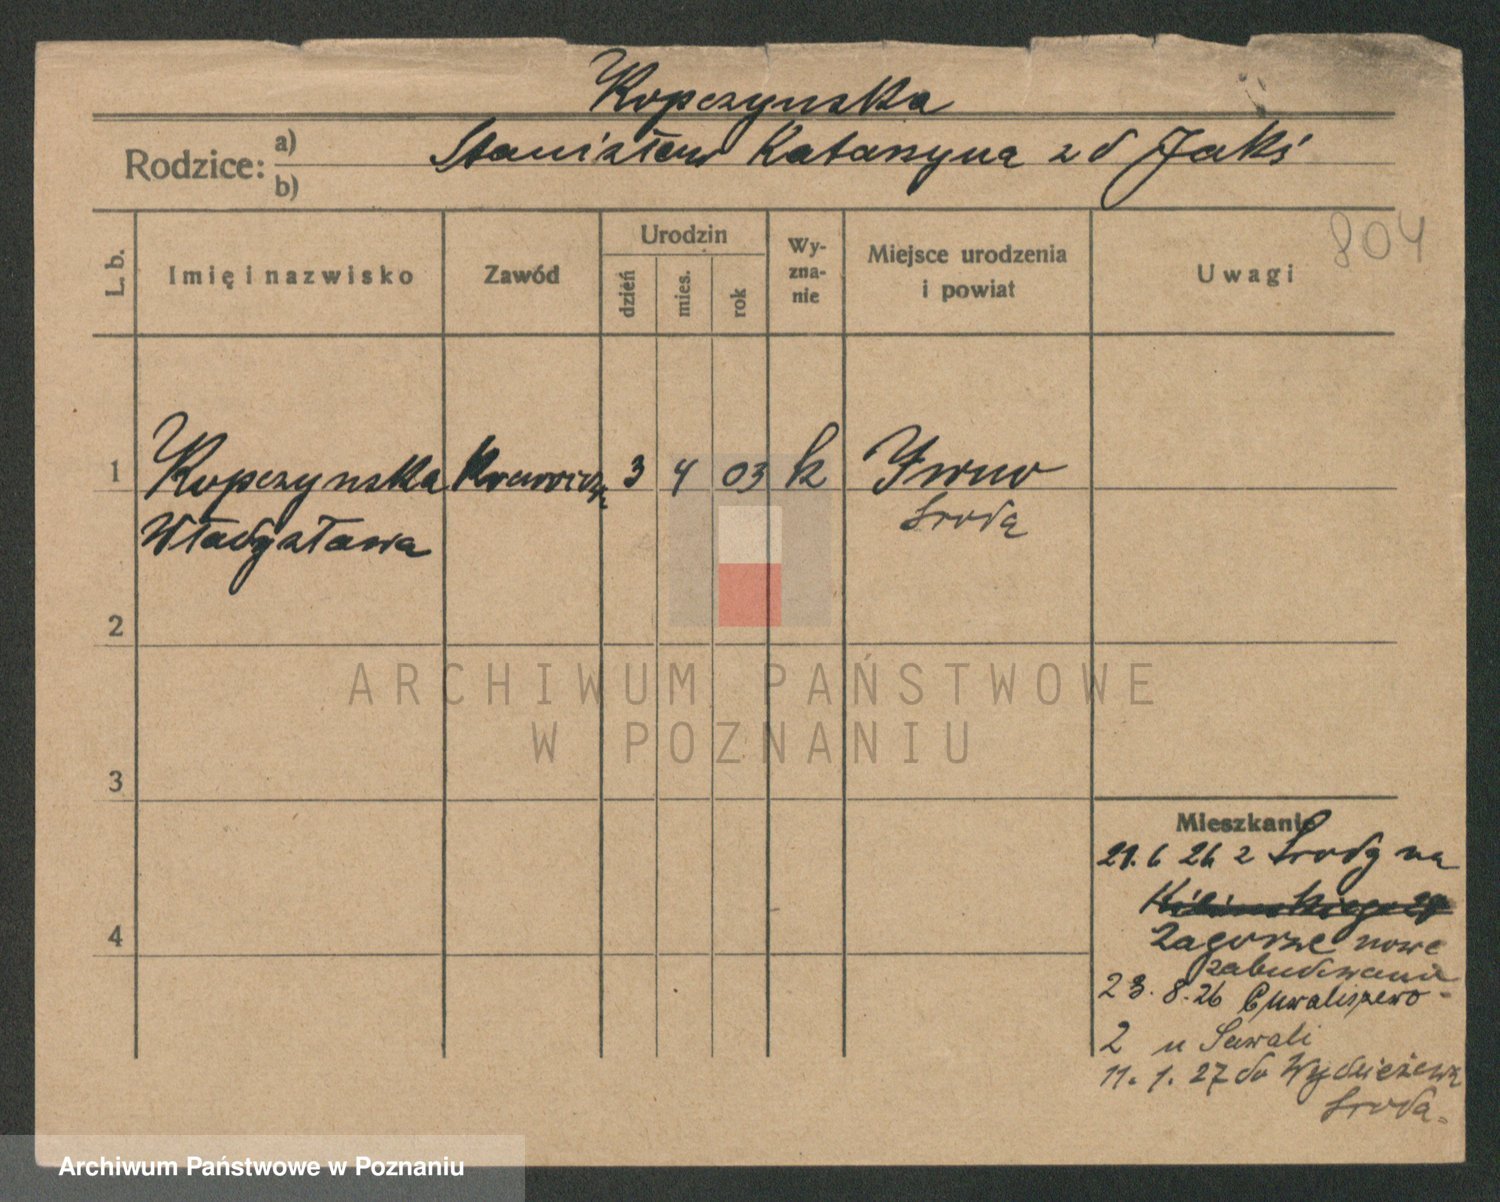 Kopczynska
Rodzice: a) b)
Stanisław Katarzyna z d Jakś
804
L. b.
Imię i nazwisko
Zawód
Urodzin
dzień
mies.
rok
Wy-
zna-
nie
Miejsce urodzenia
i powiat
Uwagi
1
Kopczynska
Władysława
Krawiczka
3 4 03 k
Iwno
Środa
2
ARCHIWUM PAŃSTWOWE
W POZNANIU
3
4
Mieszkanie
21. 6 26 z Środy na
Zagorze nowe
zabudowania
23. 8. 26 Chwaliszewo
2 u Sawali
11. 1. 27 do
Środa.
Archiwum Państwowe w Poznaniu